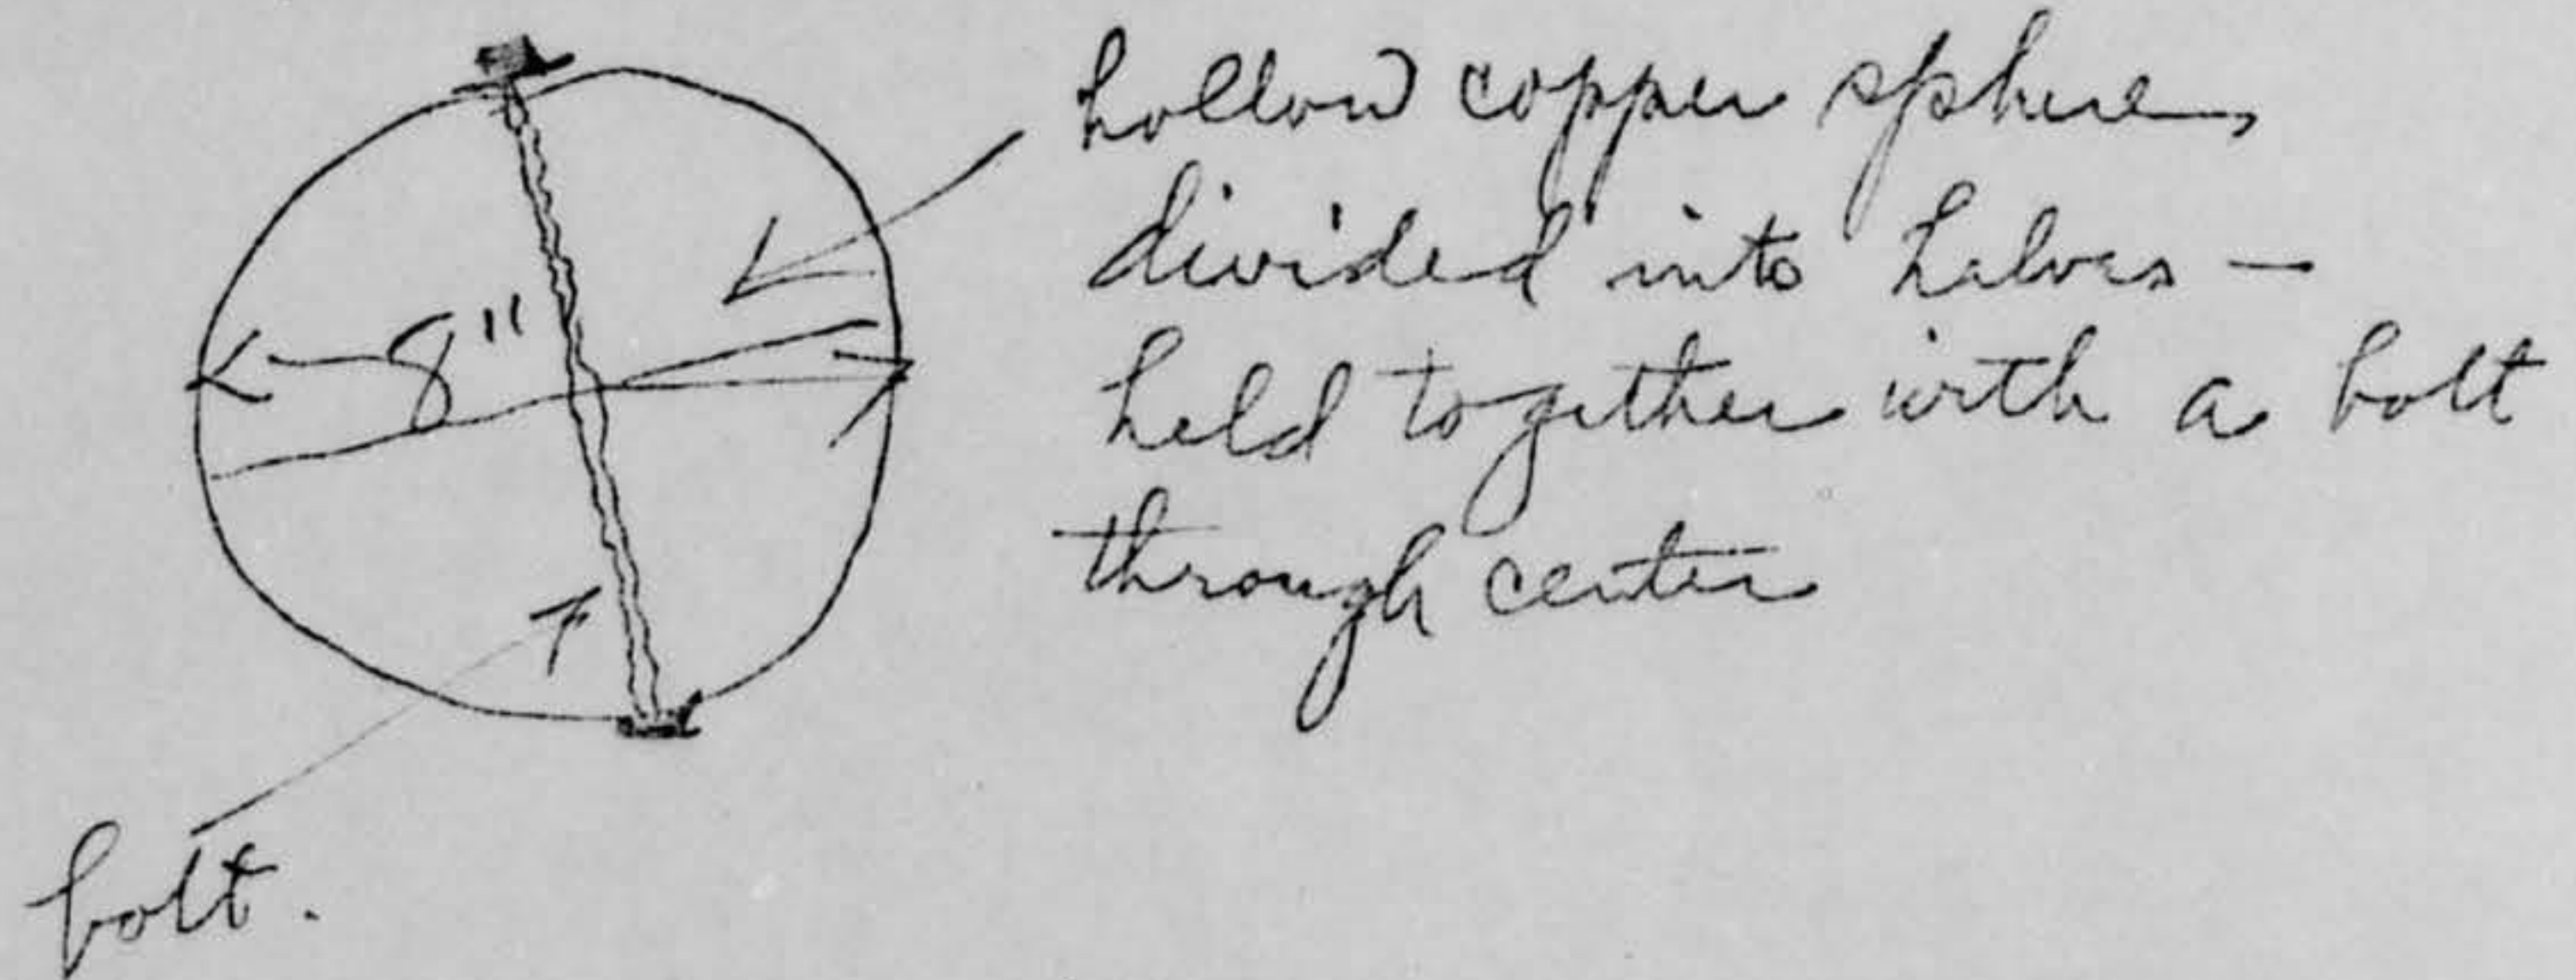 hollow copper sphere,
divided into halves —
held together with a bolt
through center
8"
bolt.